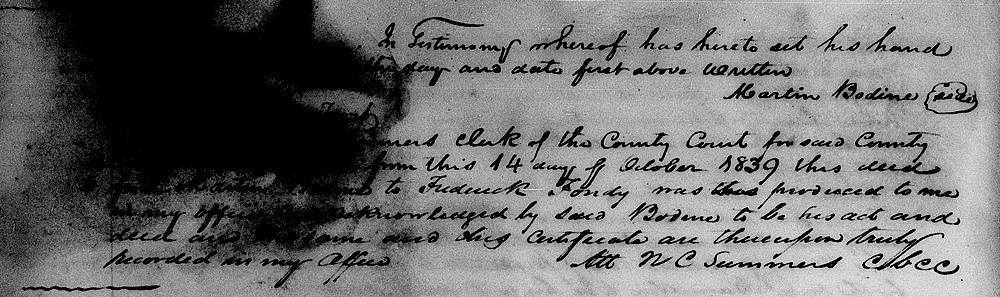 In Testimony whereof has hereto set his hand
the day and date first above written
Martin Bodine (Seal)
mers Clerk of the County Court for said County
from this 14 day of October 1839 this deed
from Martin to Frederick Fondy was thus produced to me
in my office acknowledged by said Bodine to be his act and
deed and the same and this Certificate are thereupon truly
Recorded in my office Att W C Summers C B C C